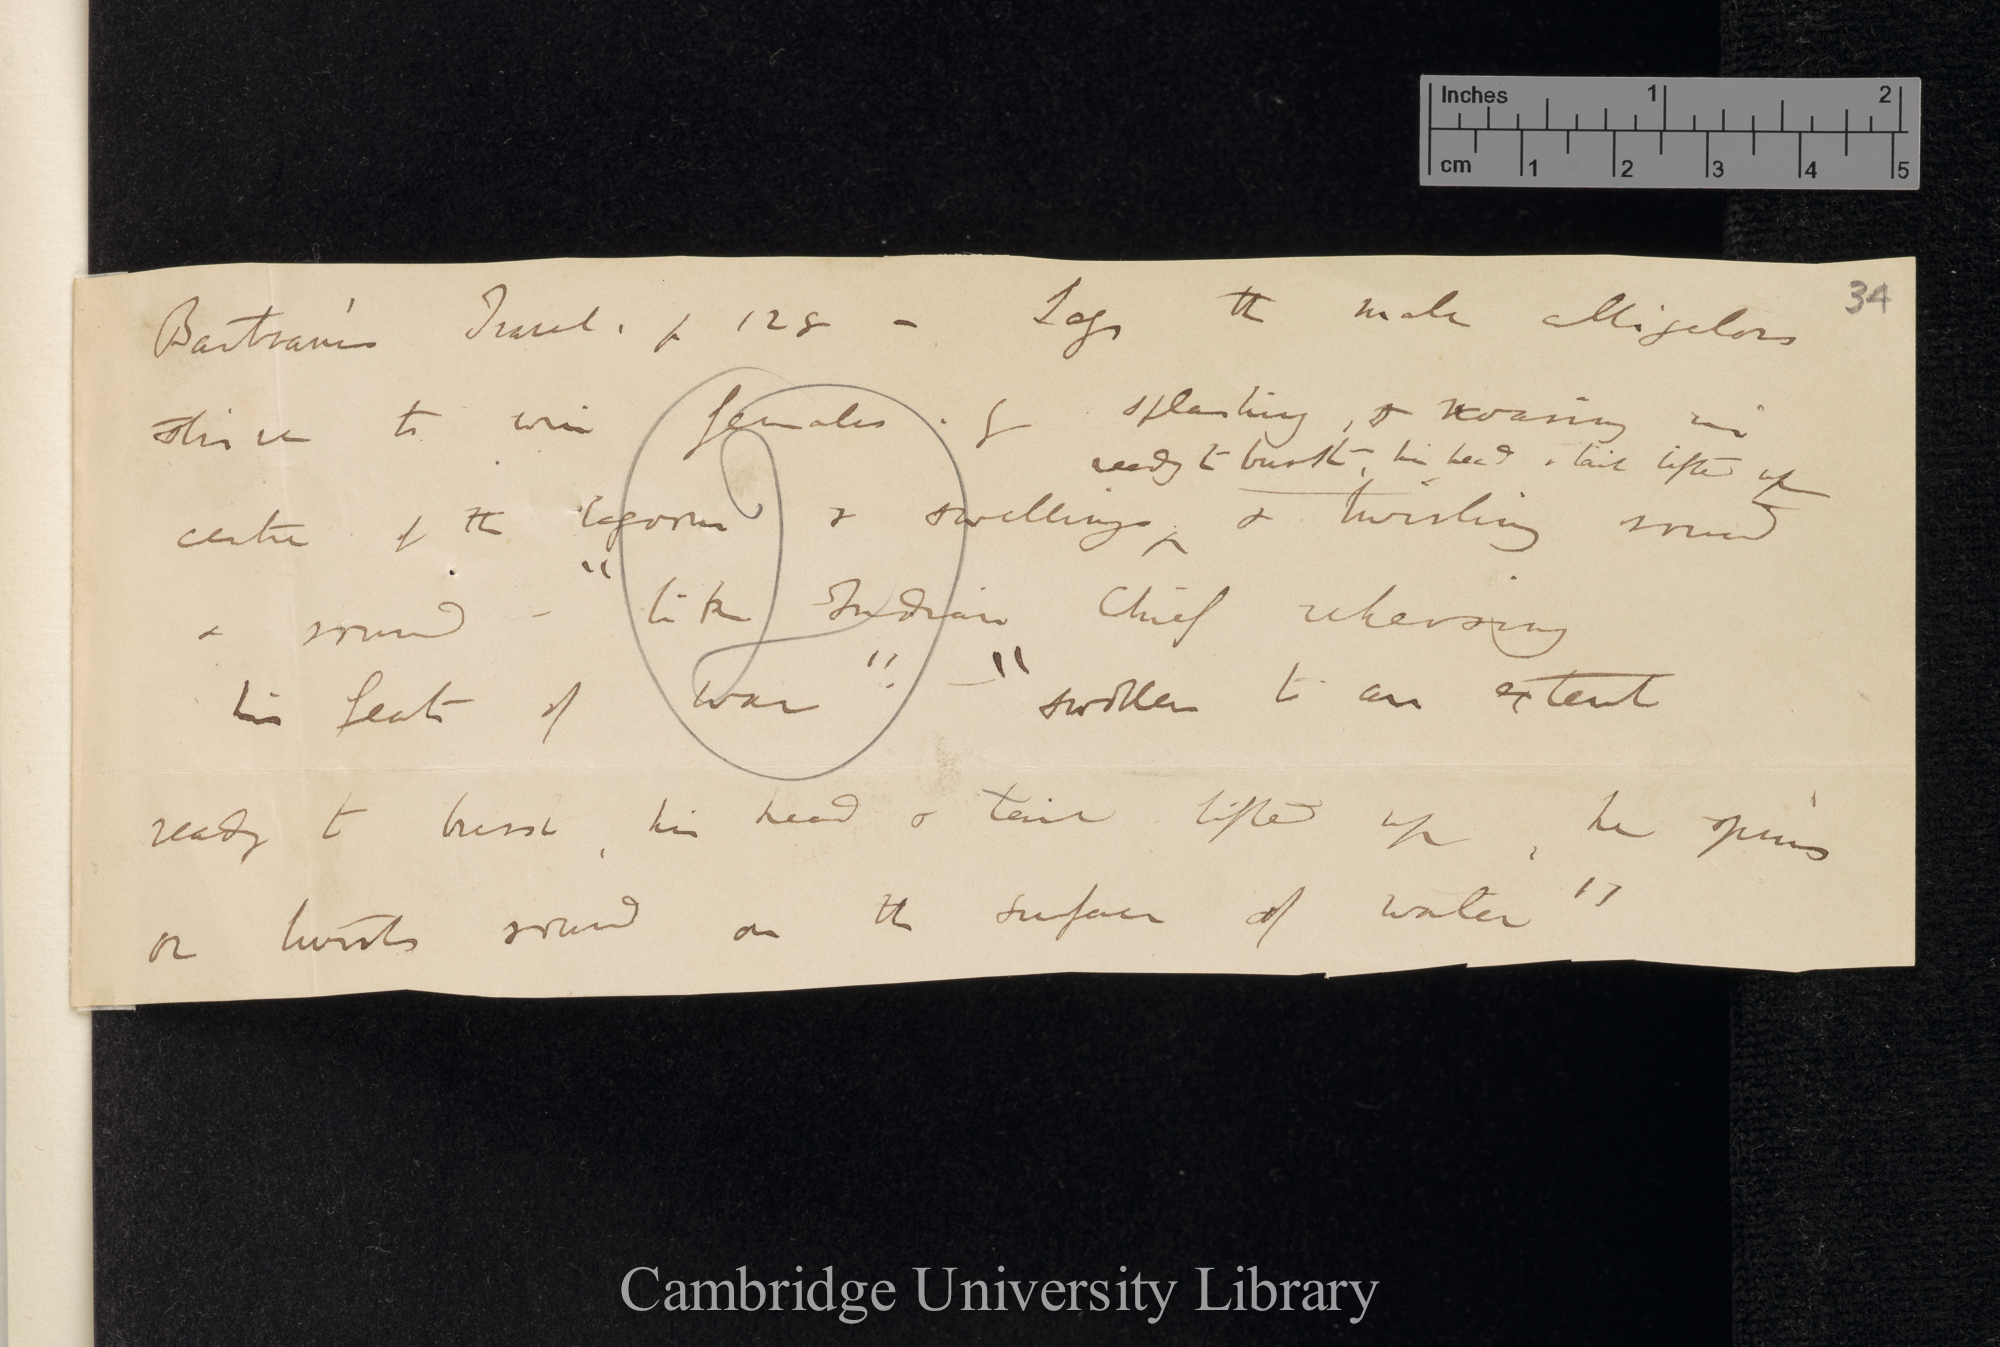 Inches 1 2
cm 1 2 3 4 5
34
Bartram's Travel. p 128 - Says the male alligators
strive to win females. by splashing, & roaring in
ready to burst, his head & tail lifted up
centre of the lagoon & swelling, & twirling round
& round - "like Indian Chief rehearsing
his feats of war". - "swollen to an extent
ready to burst, his head & tail lifted up, he spins
or twirls round on the surface of water"
Cambridge University Library